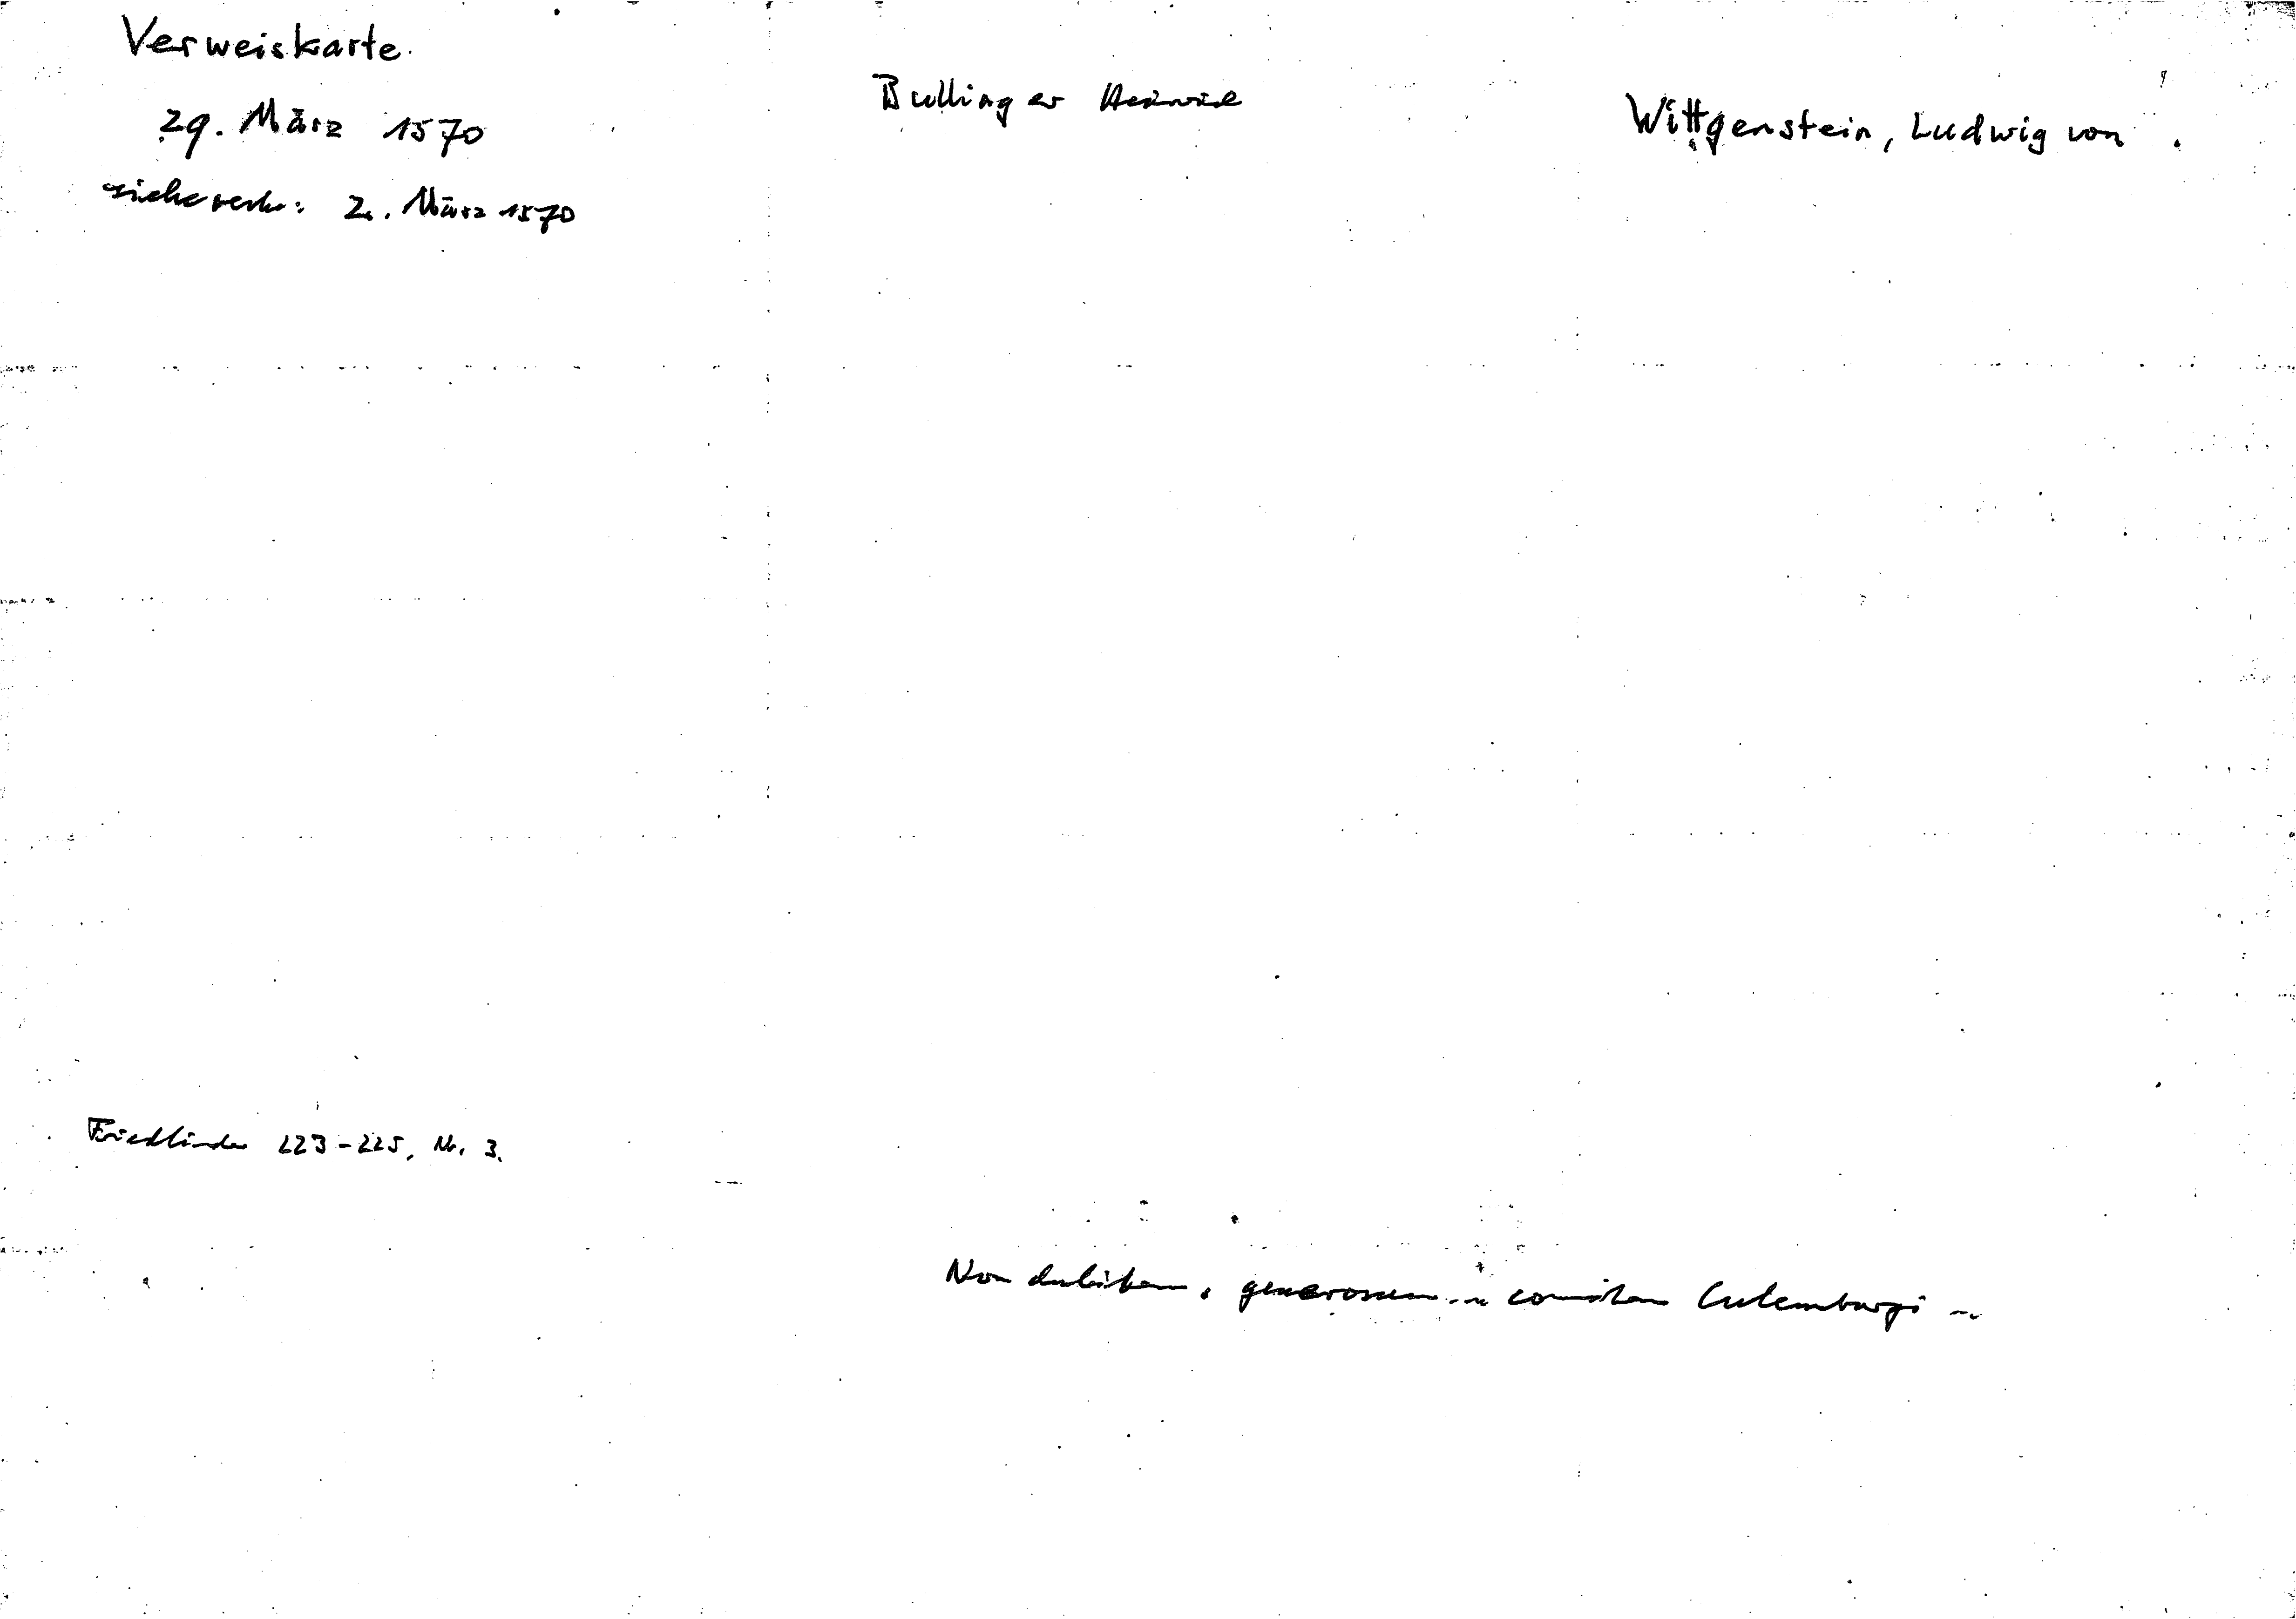 Verweiskarte.
29. März 1570
siehe verbe: 2. März 1570
Bullinger Heinrich
Wittgenstein, Ludwig von.
Friedländer 223-225, Nr. 3.
Non dubitem, generosum ... comitem Culemburgi ...